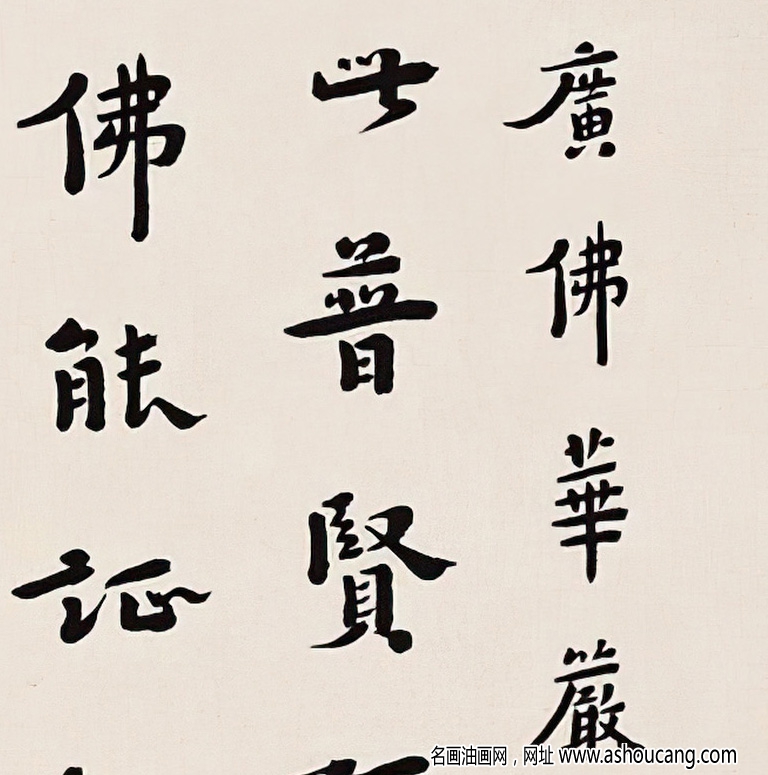 廣佛華嚴
此普賢
佛能証
名画油画网，网址 www.ashoucang.com